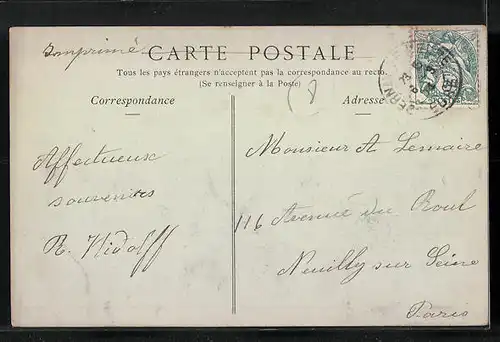 Imprimé
CARTE POSTALE
Tous les pays étrangers n'acceptent pas la correspondance au recto.
(Se renseigner à la Poste)
Correspondance
Adresse
Affectueux
souvenirs
Monsieur A Lemaire
116 Avenue du Roul
Neuilly sur Seine
Paris